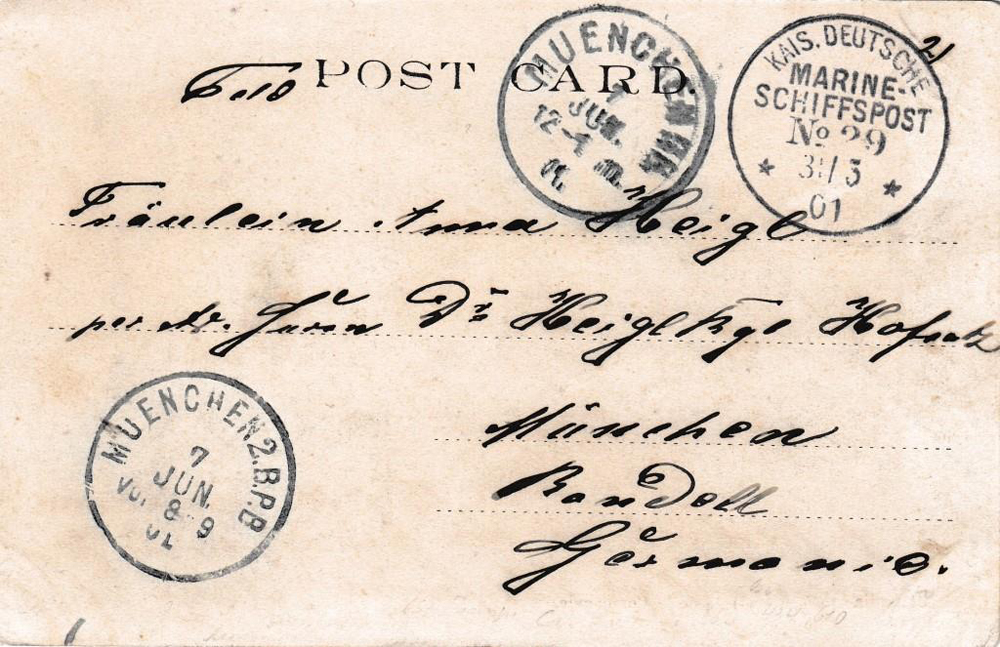 POST CARD.
MUENCHEN
7
JUN.
12-1 M.
KAIS. DEUTSCHE
MARINE-
SCHIFFSPOST
No 29
3
01
Fräulein Anna Heigl
per Dr. Heigl Kgl Hofrat
München
Germania.
MUENCHEN 2.B.P.B
7
JUN.
8-9
01